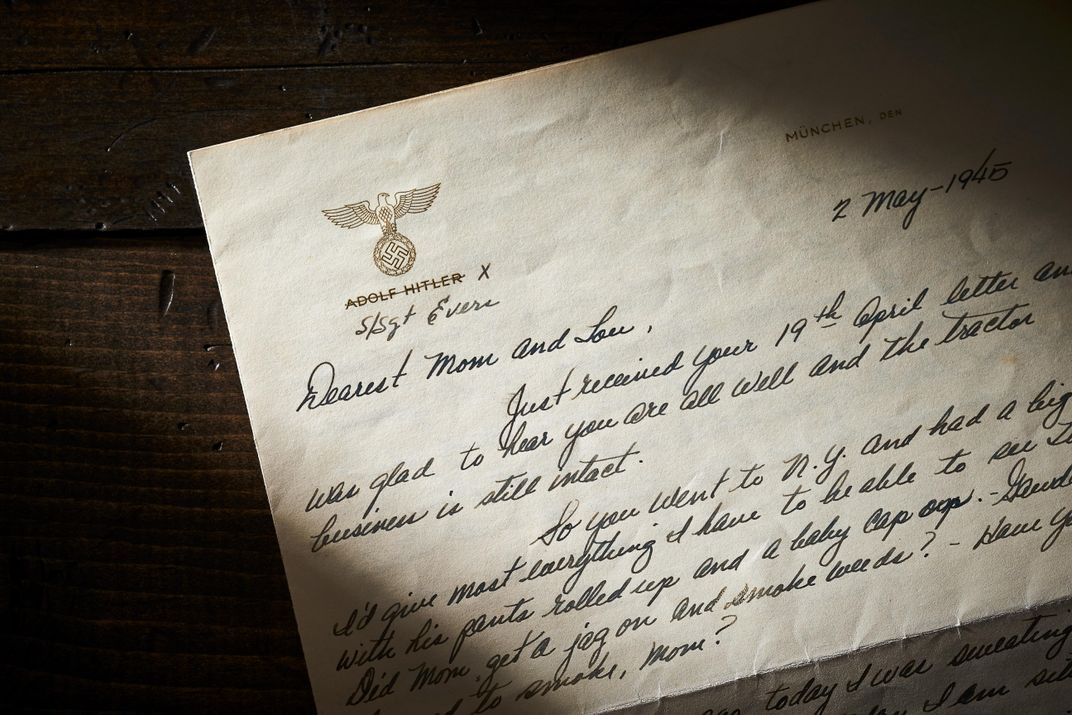 MÜNCHEN, DEN
2 May-1945
ADOLF HITLER X
S/Sgt Evers
Dearest Mom and Lou,
Just received your 19th April letter and
was glad to hear you are all well and the tractor
business is still intact.
So you went to N.Y. and had a big
I'd give most everything I have to be able to see
with his pants rolled up and a baby cap on.-
Did Mom get a jag on and smoke weeds? - Have
to smoke, Mom?
today I was sweating
I am